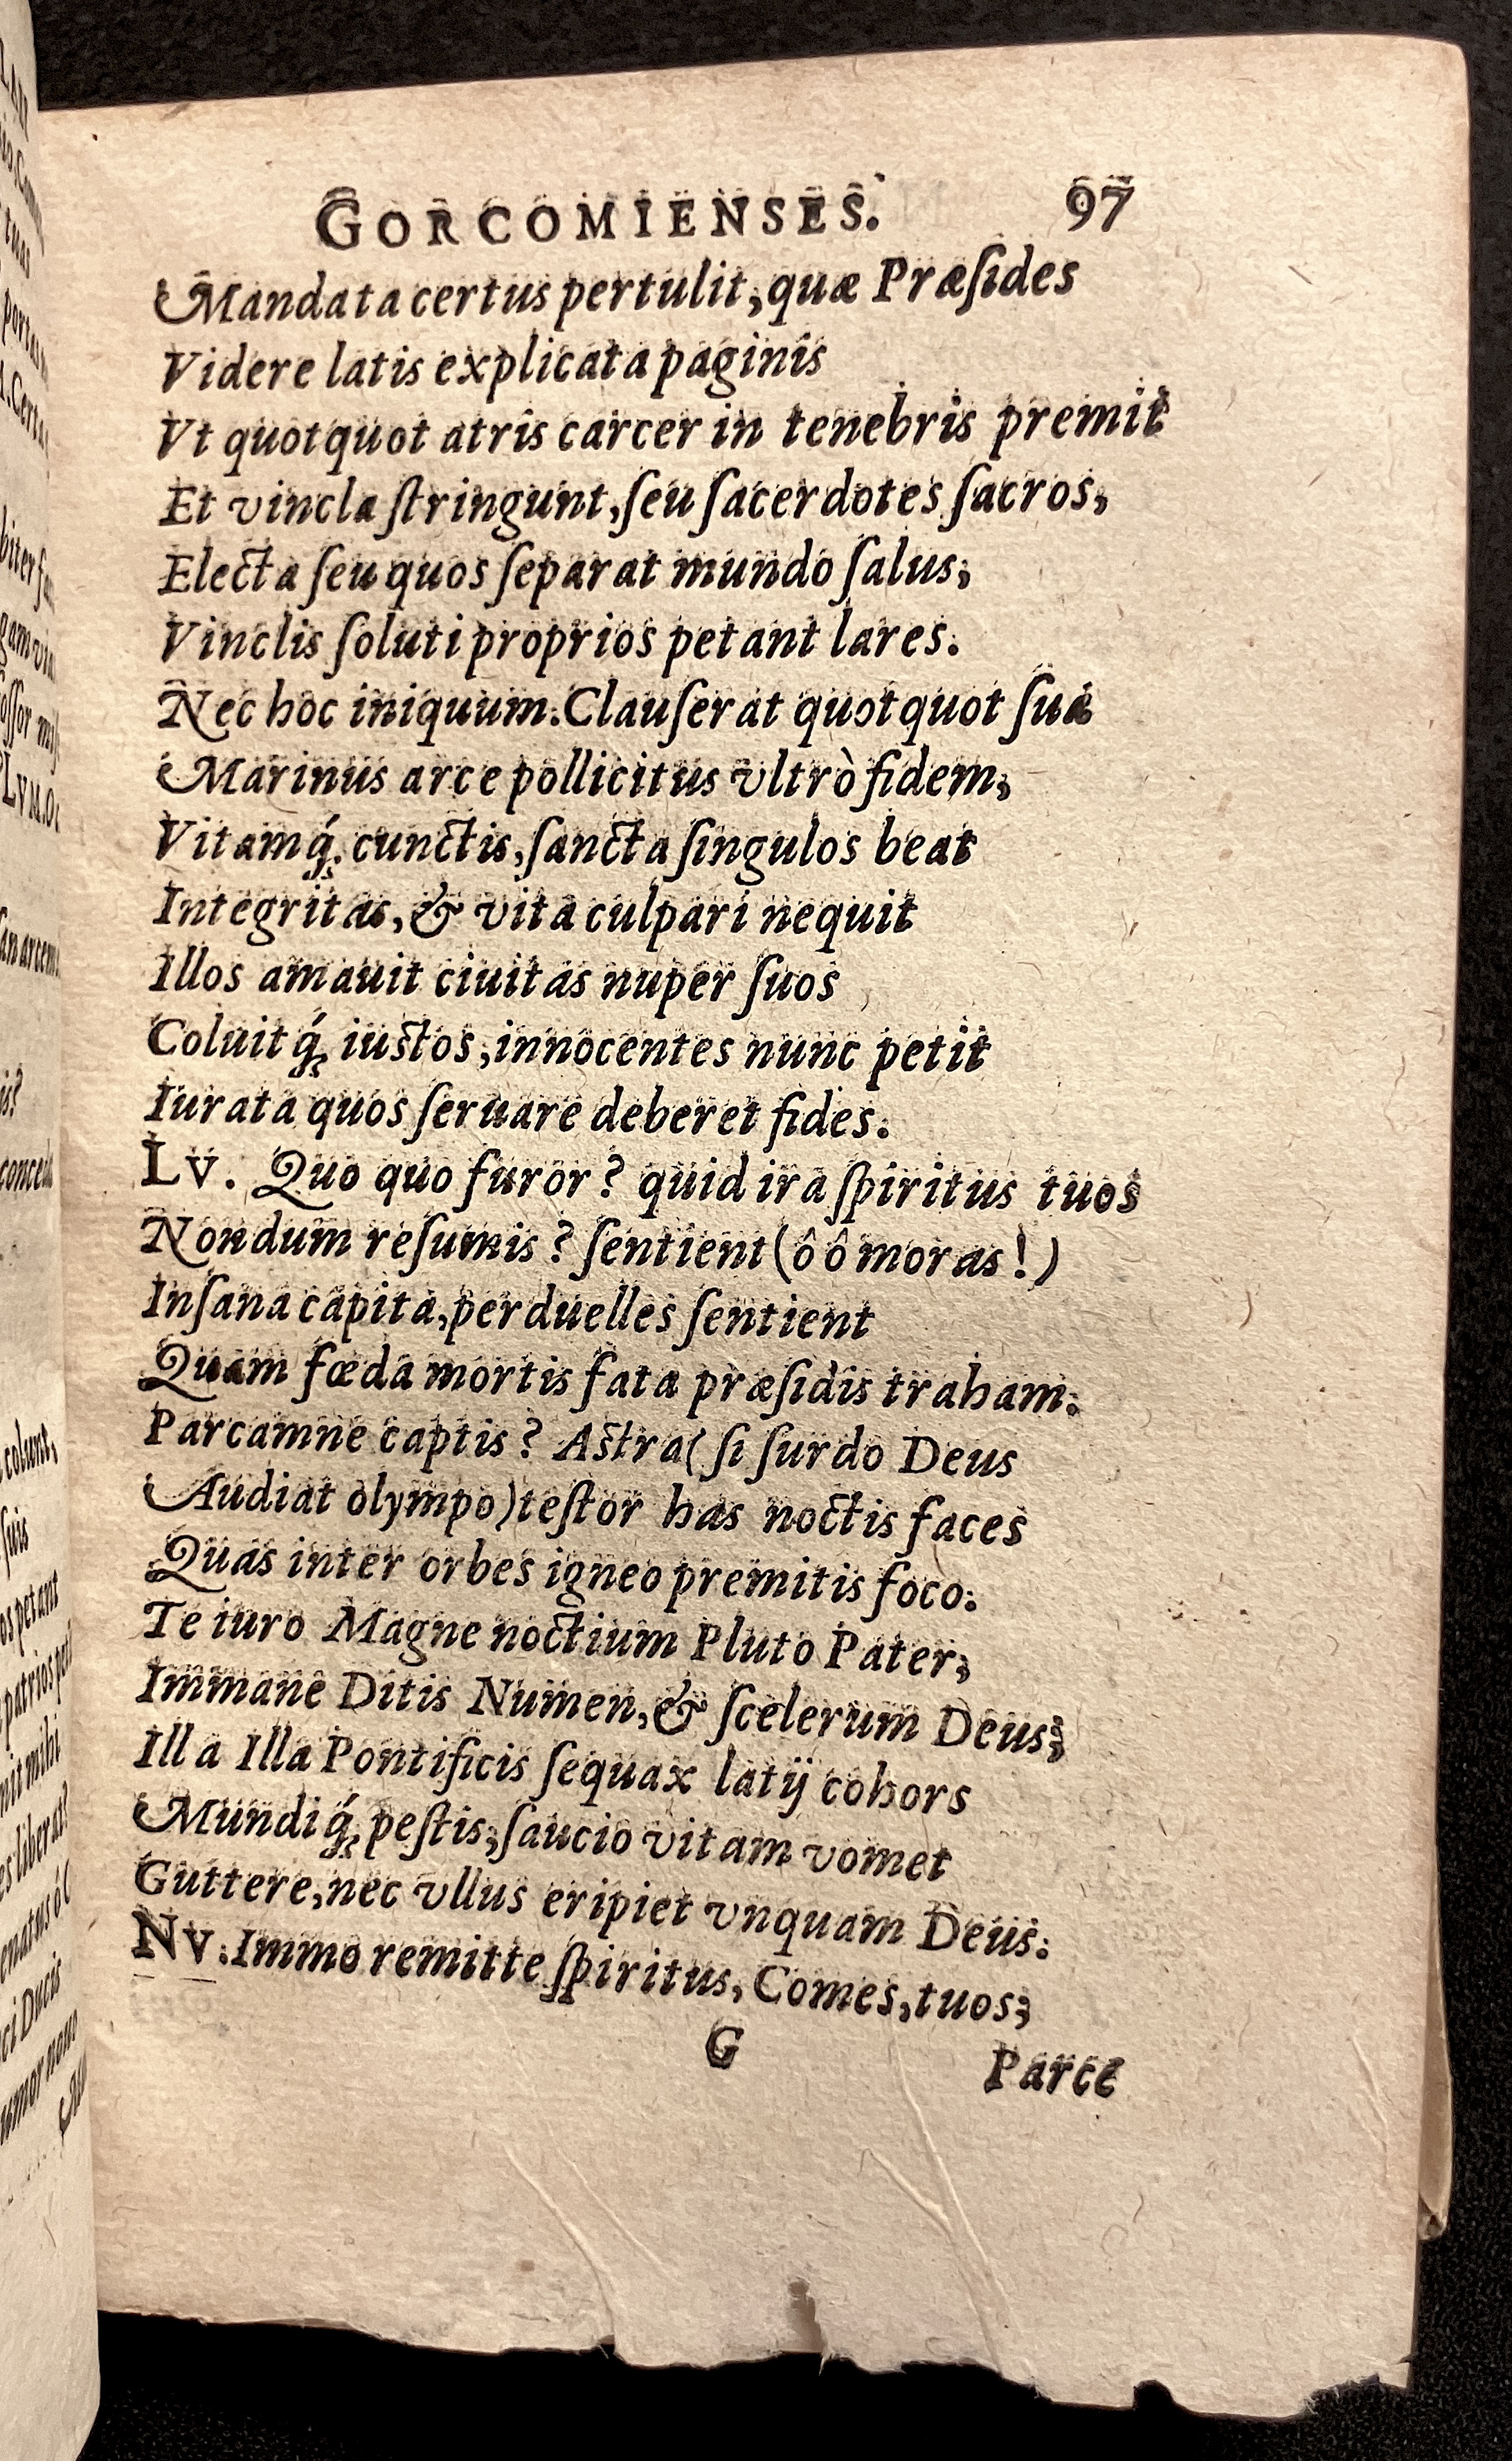 GORCOMIENSES. 97
Mandata certus pertulit, quæ Præſides
Videre latis explicata paginis
Vt quotquot atris carcer in tenebris premit
Et vincla ſtringunt, ſeu ſacerdotes ſacros,
Electa ſeu quos ſeparat mundo ſalus;
Vinclis ſoluti proprios petant lares.
Nec hoc iniquum. Clauſerat quotquot ſuâ
Marinus arce pollicitus vltrò fidem,
Vitamq́; cunctis, ſancta ſingulos beat
Integritas, & vita culpari nequit
Illos amauit ciuitas nuper ſuos
Coluitq́; iustos, innocentes nunc petit
Iurata quos ſeruare deberet fides.
LV. Quo quo furor? quid ira ſpiritus tuos
Nondum reſumis? ſentient (ô ô moras!)
Inſana capita, perduelles ſentient
Quam fœda mortis fata præſidis traham.
Parcamne captis? Astra (ſi ſurdo Deus
Audiat olympo) teſtor has noctis faces
Quas inter orbes igneo premitis foco:
Te iuro Magne noctium Pluto Pater,
Immane Ditis Numen, & ſcelerum Deus;
Illa Illa Pontificis ſequax latij cohors
Mundiq́; peſtis, ſaucio vitam vomet
Guttere, nec vllus eripiet vnquam Deus.
NV. Immo remitte ſpiritus, Comes, tuos;
G Parce
colunt,
ſuis